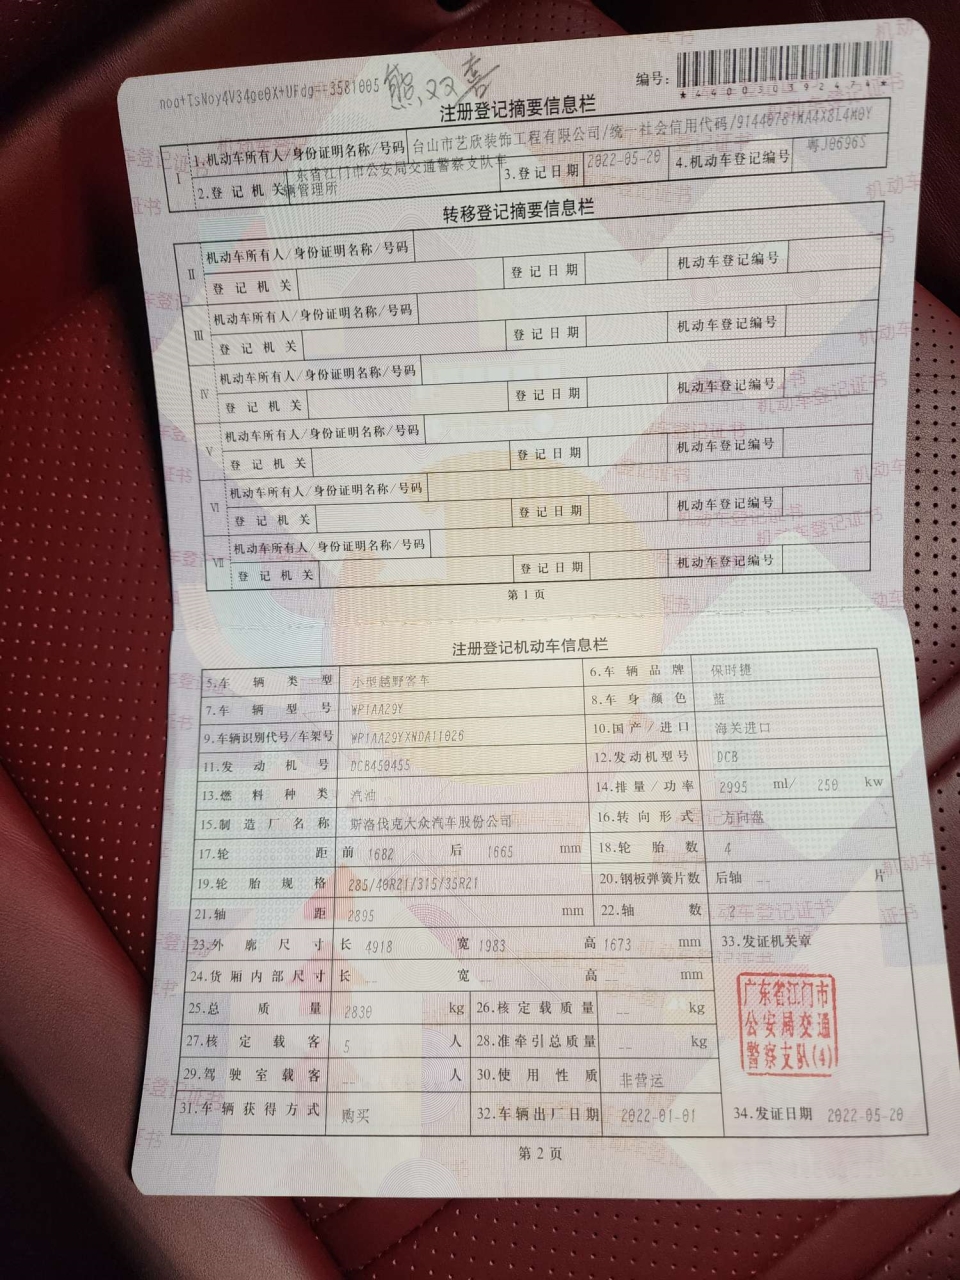 noatTsNoy4V34ge0X+UFdg==3581005
编号:
*440030392474*
注册登记摘要信息栏
I
1.机动车所有人/身份证明名称/号码 台山市艺欣装饰工程有限公司/统一社会信用代码/91440781MA4X8L4W0Y
2.登记机关 东省江门市公安局交通警察支队车辆管理所 3.登记日期 2022-05-20 4.机动车登记编号 粤J0696S
转移登记摘要信息栏
II 机动车所有人/身份证明名称/号码
登记机关 登记日期 机动车登记编号
III 机动车所有人/身份证明名称/号码
登记机关 登记日期 机动车登记编号
IV 机动车所有人/身份证明名称/号码
登记机关 登记日期 机动车登记编号
V 机动车所有人/身份证明名称/号码
登记机关 登记日期 机动车登记编号
VI 机动车所有人/身份证明名称/号码
登记机关 登记日期 机动车登记编号
VII 机动车所有人/身份证明名称/号码
登记机关 登记日期 机动车登记编号
第1页
注册登记机动车信息栏
5.车辆类型 小型越野客车 6.车辆品牌 保时捷
7.车辆型号 WP1AA29Y 8.车身颜色 蓝
9.车辆识别代号/车架号 WP1AA29YXNDA11026 10.国产/进口 海关进口
11.发动机号 DCB450455 12.发动机型号 DCB
13.燃料种类 汽油 14.排量/功率 2995 ml/ 250 kw
15.制造厂名称 斯洛伐克大众汽车股份公司 16.转向形式 方向盘
17.轮距 前 1682 后 1665 mm 18.轮胎数 4
19.轮胎规格 285/40R21/315/35R21 20.钢板弹簧片数 后轴 -- 片
21.轴距 2895 mm 22.轴数 2
23.外廓尺寸 长 4918 宽 1983 高 1673 mm 33.发证机关章
24.货厢内部尺寸 长 -- 宽 -- 高 -- mm
25.总质量 2830 kg 26.核定载质量 -- kg
27.核定载客 5 人 28.准牵引总质量 -- kg
29.驾驶室载客 -- 人 30.使用性质 非营运
31.车辆获得方式 购买 32.车辆出厂日期 2022-01-01 34.发证日期 2022-05-20
广东省江门市
公安局交通
警察支队(4)
第2页